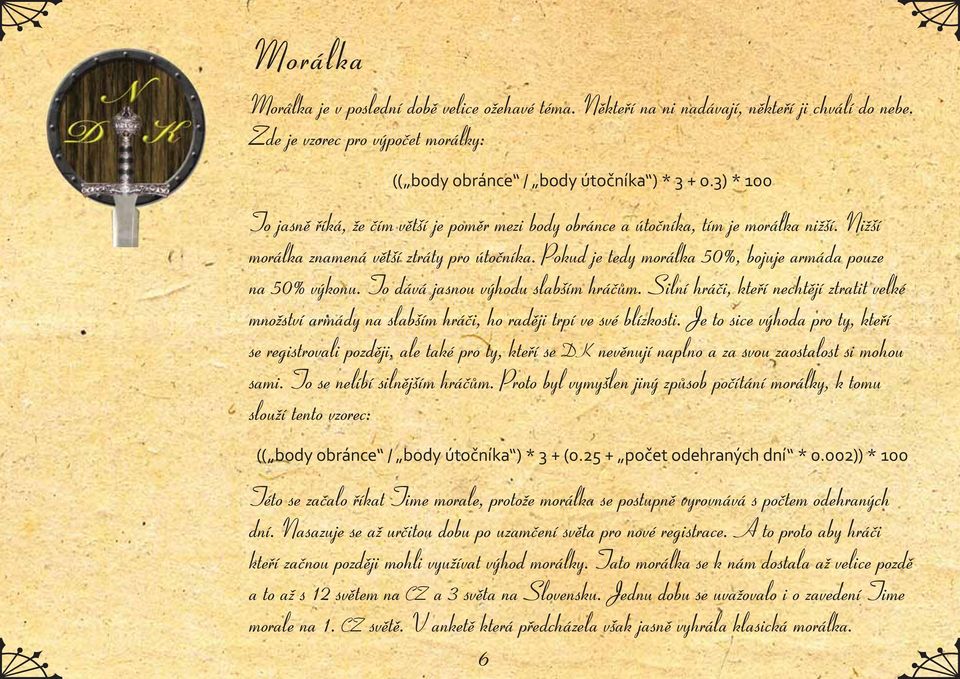 N
D K
Morálka
Morálka je v poslední době velice ožehavé téma. Někteří na ni nadávají, někteří ji chválí do nebe.
Zde je vzorec pro výpočet morálky:
((„body obránce“ / „body útočníka“) * 3 + 0.3) * 100
To jasně říká, že čím větší je poměr mezi body obránce a útočníka, tím je morálka nižší. Nižší
morálka znamená větší ztráty pro útočníka. Pokud je tedy morálka 50%, bojuje armáda pouze
na 50% výkonu. To dává jasnou výhodu slabším hráčům. Silní hráči, kteří nechtějí ztratit velké
množství armády na slabším hráči, ho raději trpí ve své blízkosti. Je to sice výhoda pro ty, kteří
se registrovali později, ale také pro ty, kteří se DK nevěnují naplno a za svou zaostalost si mohou
sami. To se nelíbí silnějším hráčům. Proto byl vymyšlen jiný způsob počítání morálky, k tomu
slouží tento vzorec:
((„body obránce“ / „body útočníka“) * 3 + (0.25 + „počet odehraných dní“ * 0.002)) * 100
Této se začalo říkat Time morale, protože morálka se postupně vyrovnává s počtem odehraných
dní. Nasazuje se až určitou dobu po uzamčení světa pro nové registrace. A to proto aby hráči
kteří začnou později mohli využívat výhod morálky. Tato morálka se k nám dostala až velice pozdě
a to až s 12 světem na CZ a 3 světa na Slovensku. Jednu dobu se uvažovalo i o zavedení Time
morale na 1. CZ světě. V anketě která předcházela však jasně vyhrála klasická morálka.
6